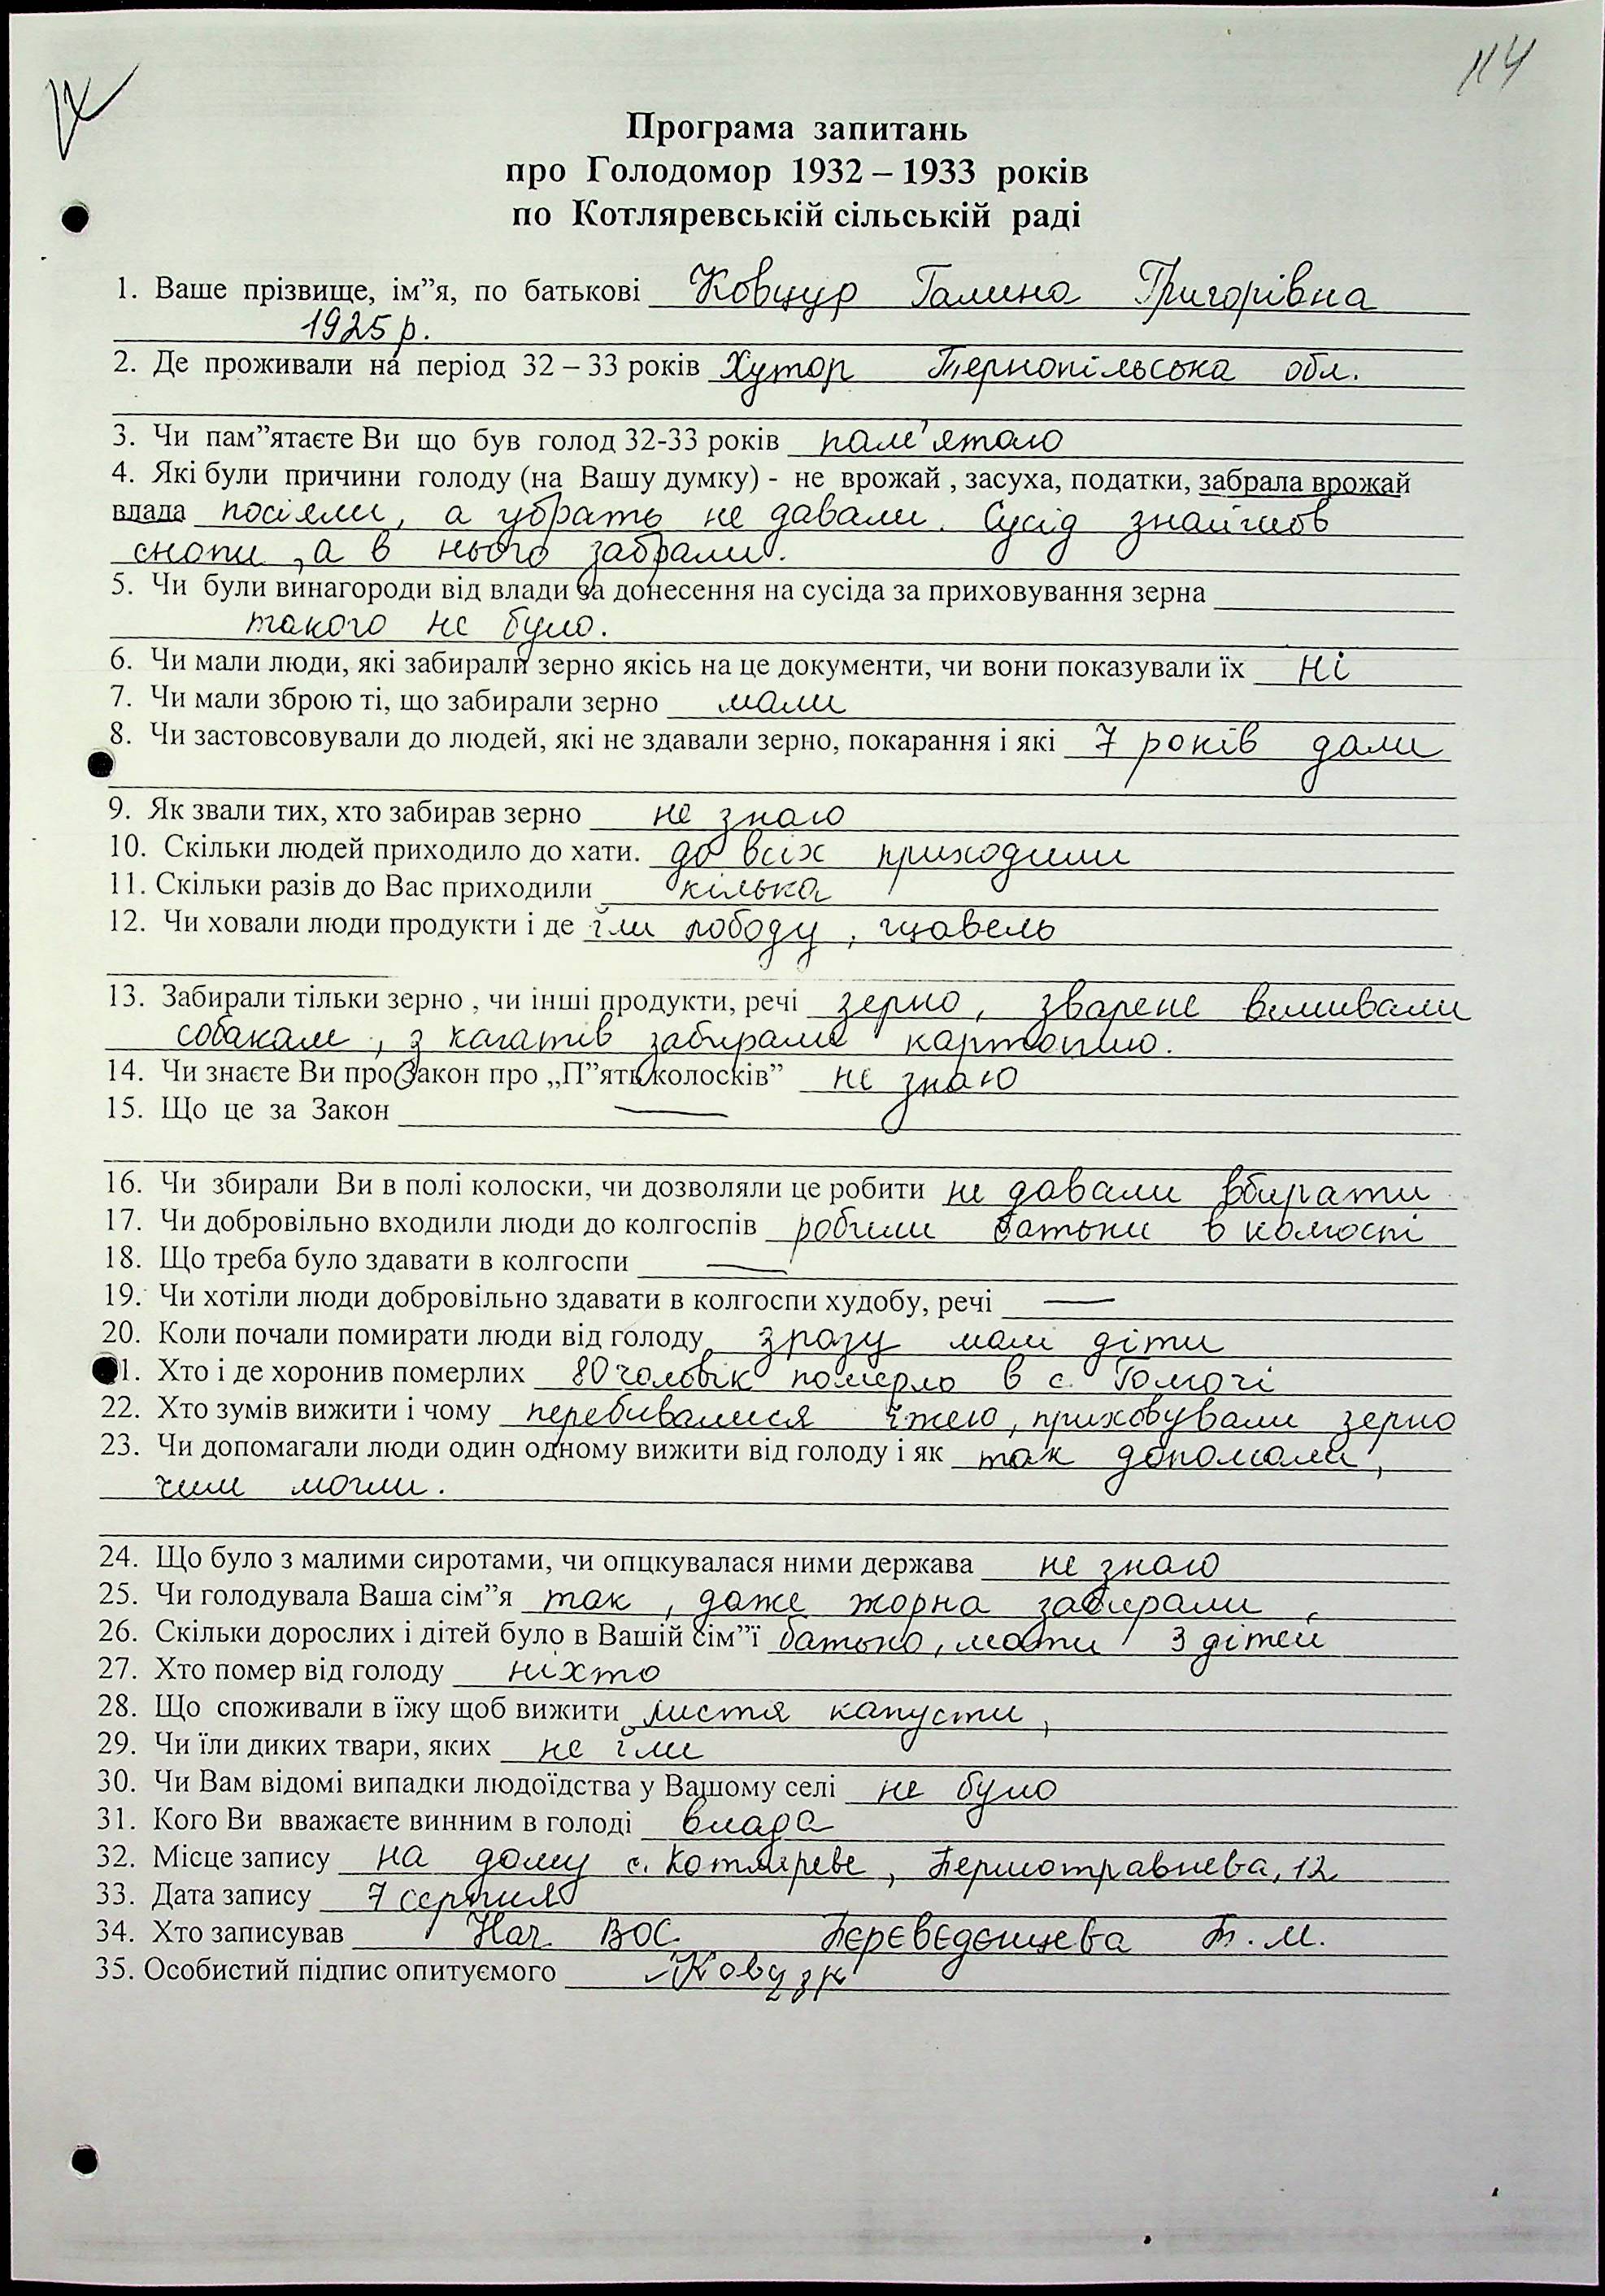 114
Програма запитань
про Голодомор 1932 – 1933 років
по Котляревській сільській раді
1. Ваше прізвище, ім”я, по батькові Ковцур Галина Григорівна
1925 р.
2. Де проживали на період 32 – 33 років Хутор Тернопільська обл.
3. Чи пам”ятаєте Ви що був голод 32-33 років пам'ятаю
4. Які були причини голоду (на Вашу думку) - не врожай , засуха, податки, забрала врожай
влада посіяли, а убрать не давали. Сусід знайшов
снопи, а в нього забрали.
5. Чи були винагороди від влади за донесення на сусіда за приховування зерна
такого не було.
6. Чи мали люди, які забирали зерно якісь на це документи, чи вони показували їх ні
7. Чи мали зброю ті, що забирали зерно мали
8. Чи застовсовували до людей, які не здавали зерно, покарання і які 7 років дали
9. Як звали тих, хто забирав зерно не знаю
10. Скільки людей приходило до хати. до всіх приходили
11. Скільки разів до Вас приходили кілька
12. Чи ховали люди продукти і де їли лободу, щавель
13. Забирали тільки зерно , чи інші продукти, речі зерно, зварене виливали
собакам, з кагатів забирали картоплю.
14. Чи знаєте Ви про Закон про „П”ять колосків” не знаю
15. Що це за Закон —
16. Чи збирали Ви в полі колоски, чи дозволяли це робити не давали вбирати
17. Чи добровільно входили люди до колгоспів робили батьки в колгоспі
18. Що треба було здавати в колгоспи —
19. Чи хотіли люди добровільно здавати в колгоспи худобу, речі —
20. Коли почали помирати люди від голоду зразу малі діти
21. Хто і де хоронив померлих 80 чоловік померло в с.
22. Хто зумів вижити і чому перебивалися їжею, приховували зерно
23. Чи допомагали люди один одному вижити від голоду і як так допомагали,
чим могли.
24. Що було з малими сиротами, чи опцкувалася ними держава не знаю
25. Чи голодувала Ваша сім”я так, даже жорна забирали,
26. Скільки дорослих і дітей було в Вашій сім”ї батько, мати 3 дітей
27. Хто помер від голоду ніхто
28. Що споживали в їжу щоб вижити листя капусти,
29. Чи їли диких твари, яких не їли
30. Чи Вам відомі випадки людоїдства у Вашому селі не було
31. Кого Ви вважаєте винним в голоді влада
32. Місце запису на дому с. Котляреве, Першотравнева, 12
33. Дата запису 7 серпня
34. Хто записував Нач. ВОС Перєвєдєнцева Т. М.
35. Особистий підпис опитуємого Ковцур